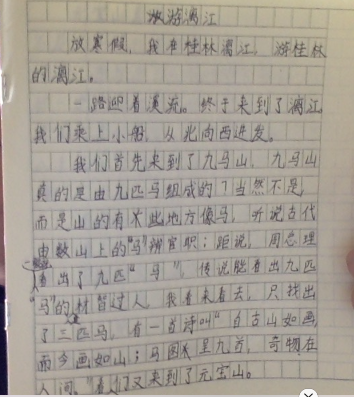 游漓江
放寒假，我在桂林漓江，游桂林
的漓江。
一路迎着溪流。终于来到了漓江
我们乘上小船，从北向西进发。
我们首先来到了九马山，九马山
真的是由九匹马组成的？当然不是，
而是山的有些地方像马，听说古代
由数山上的“马”辨官职；距说，周总理
看出了九匹“马”，传说能看出九匹
“马”的材智过人，我看来看去，只找出
了三匹马，有一首诗叫“自古山如画，
而今画如山；马图呈九首，奇物在
人间。”我们又来到了元宝山。